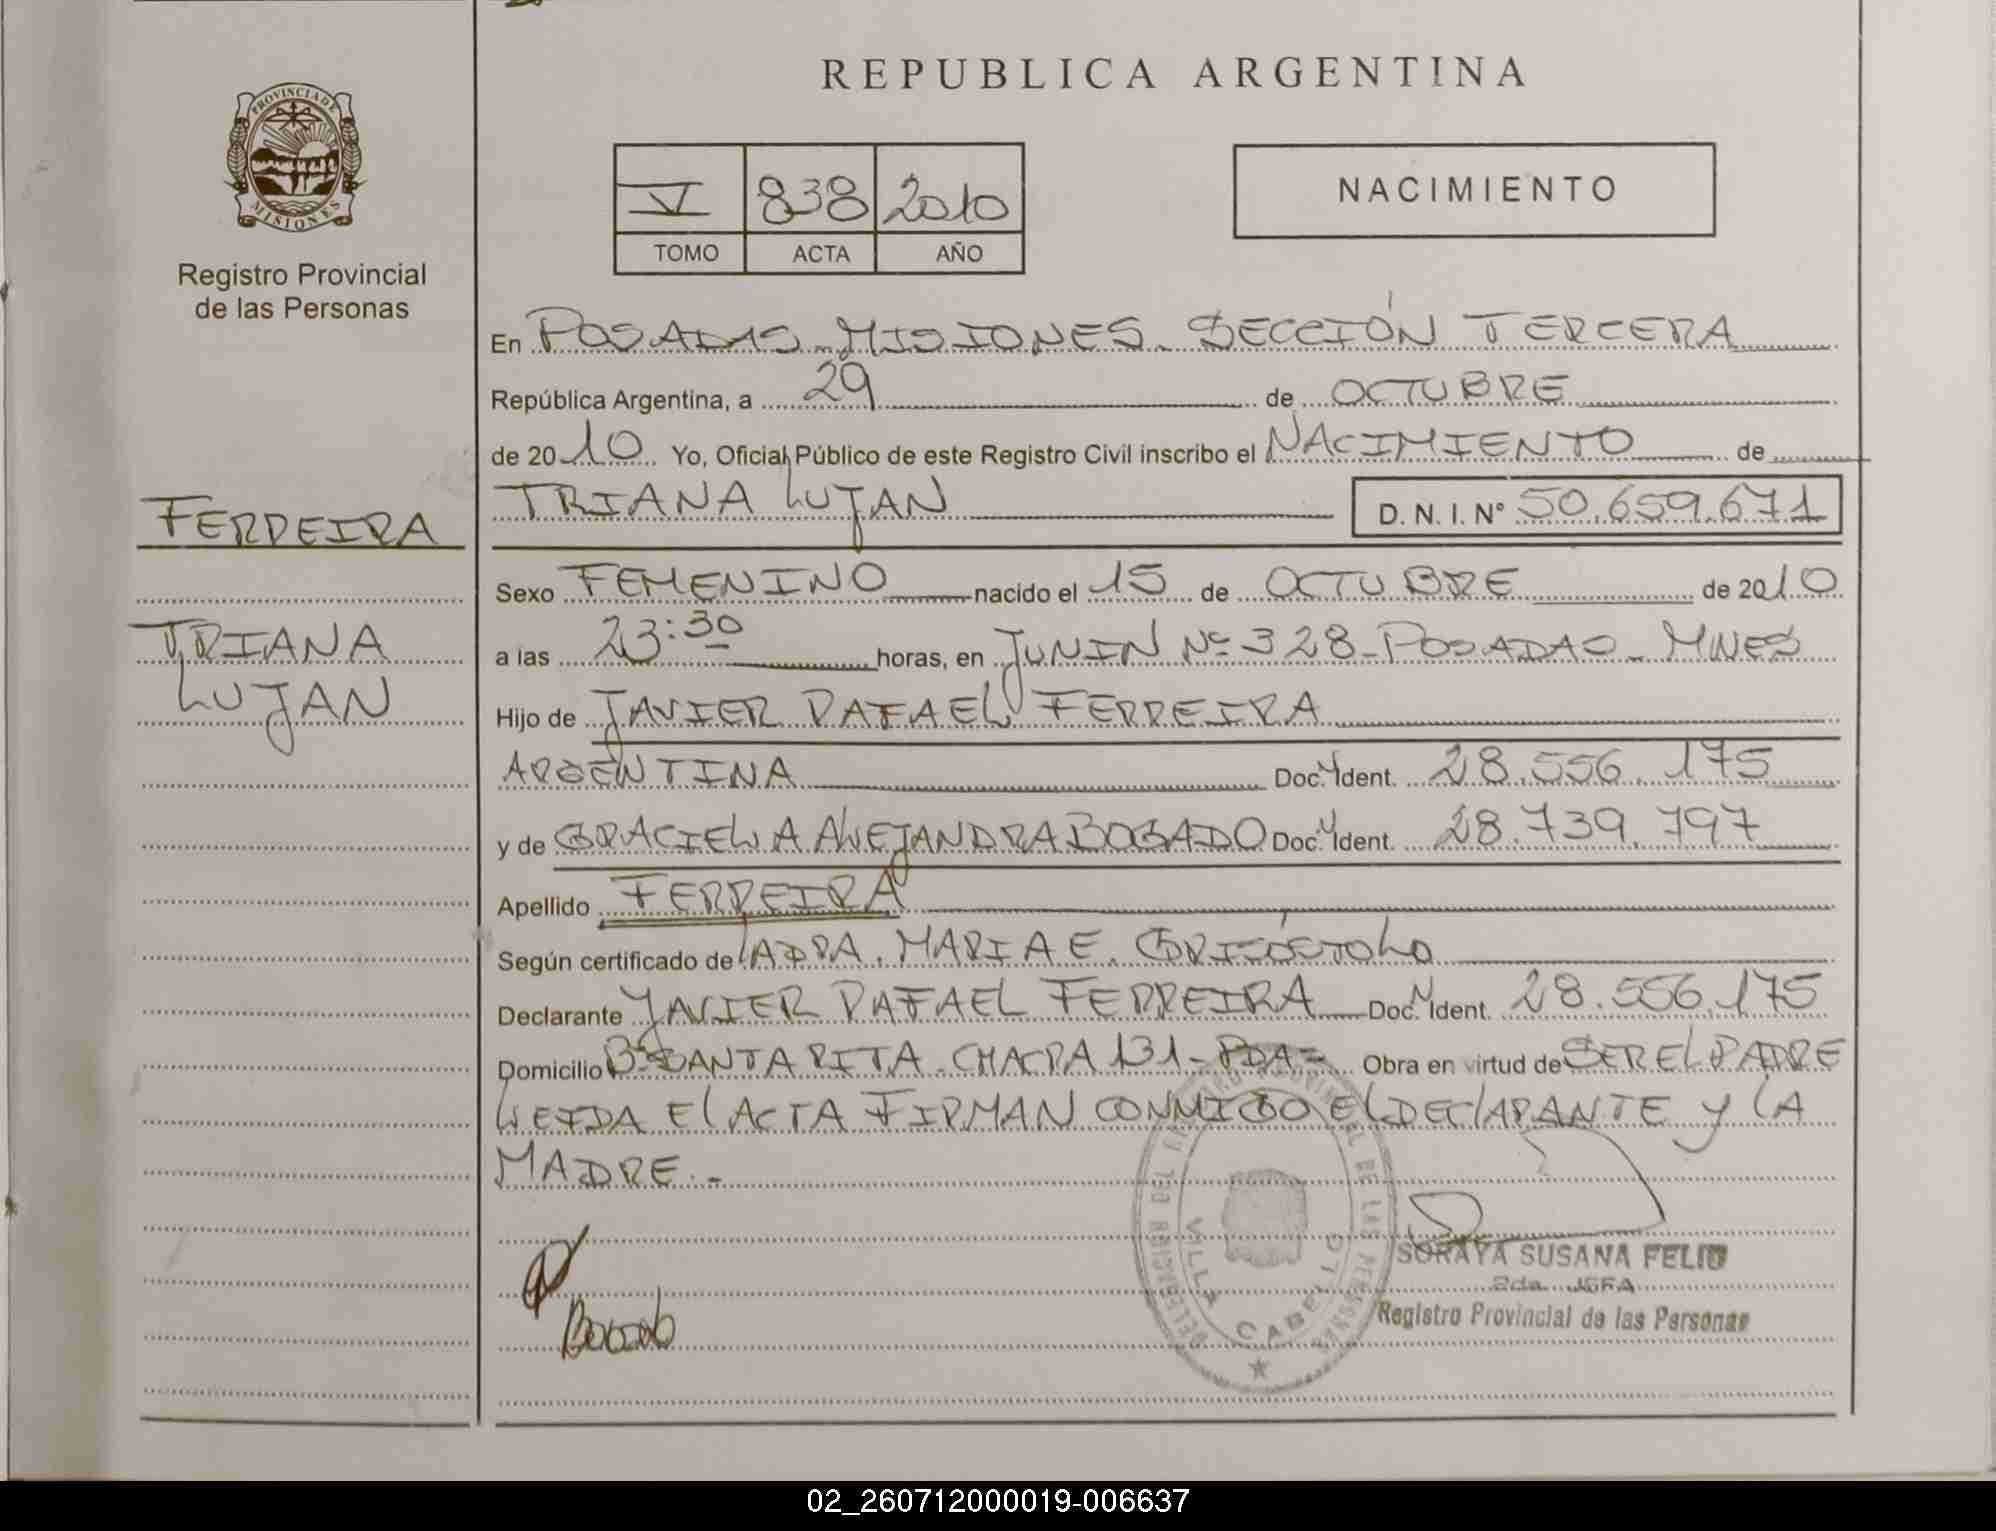 REPUBLICA ARGENTINA
PROVINCIA DE MISIONES
Registro Provincial
de las Personas
V 838 2010
TOMO ACTA AÑO
NACIMIENTO
En POSADAS - MISIONES - SECCIÓN TERCERA
República Argentina, a 29 de OCTUBRE
de 2010 Yo, Oficial Público de este Registro Civil inscribo el NACIMIENTO de
TRIANA LUJAN D. N. I. N° 50.659.671
FERREIRA
TRIANA
LUJAN
Sexo FEMENINO nacido el 15 de OCTUBRE de 2010
a las 23:30 horas, en JUNIN Nº 328 - POSADAS - MNES
Hijo de JAVIER RAFAEL FERREIRA
ARGENTINA Doc. Ident. 28.556.175
y de GRACIELA ALEJANDRA BOGADO Doc. Ident. 28.739.797
Apellido FERREIRA
Según certificado de LA DRA. MARIA E.
Declarante JAVIER RAFAEL FERREIRA Doc. Ident. 28.556.175
Domicilio Bº SANTA RITA - CHACRA 131 - PDAS Obra en virtud de SER EL PADRE
LEIDA EL ACTA FIRMAN CONMIGO EL DECLARANTE Y LA
MADRE.-
DELEGACION DEL REGISTRO PROVINCIAL DE LAS PERSONAS
VILLA CABELLO
SORAYA SUSANA FELIU
2da. JEFA
Registro Provincial de las Personas
Bogado
02_260712000019-006637